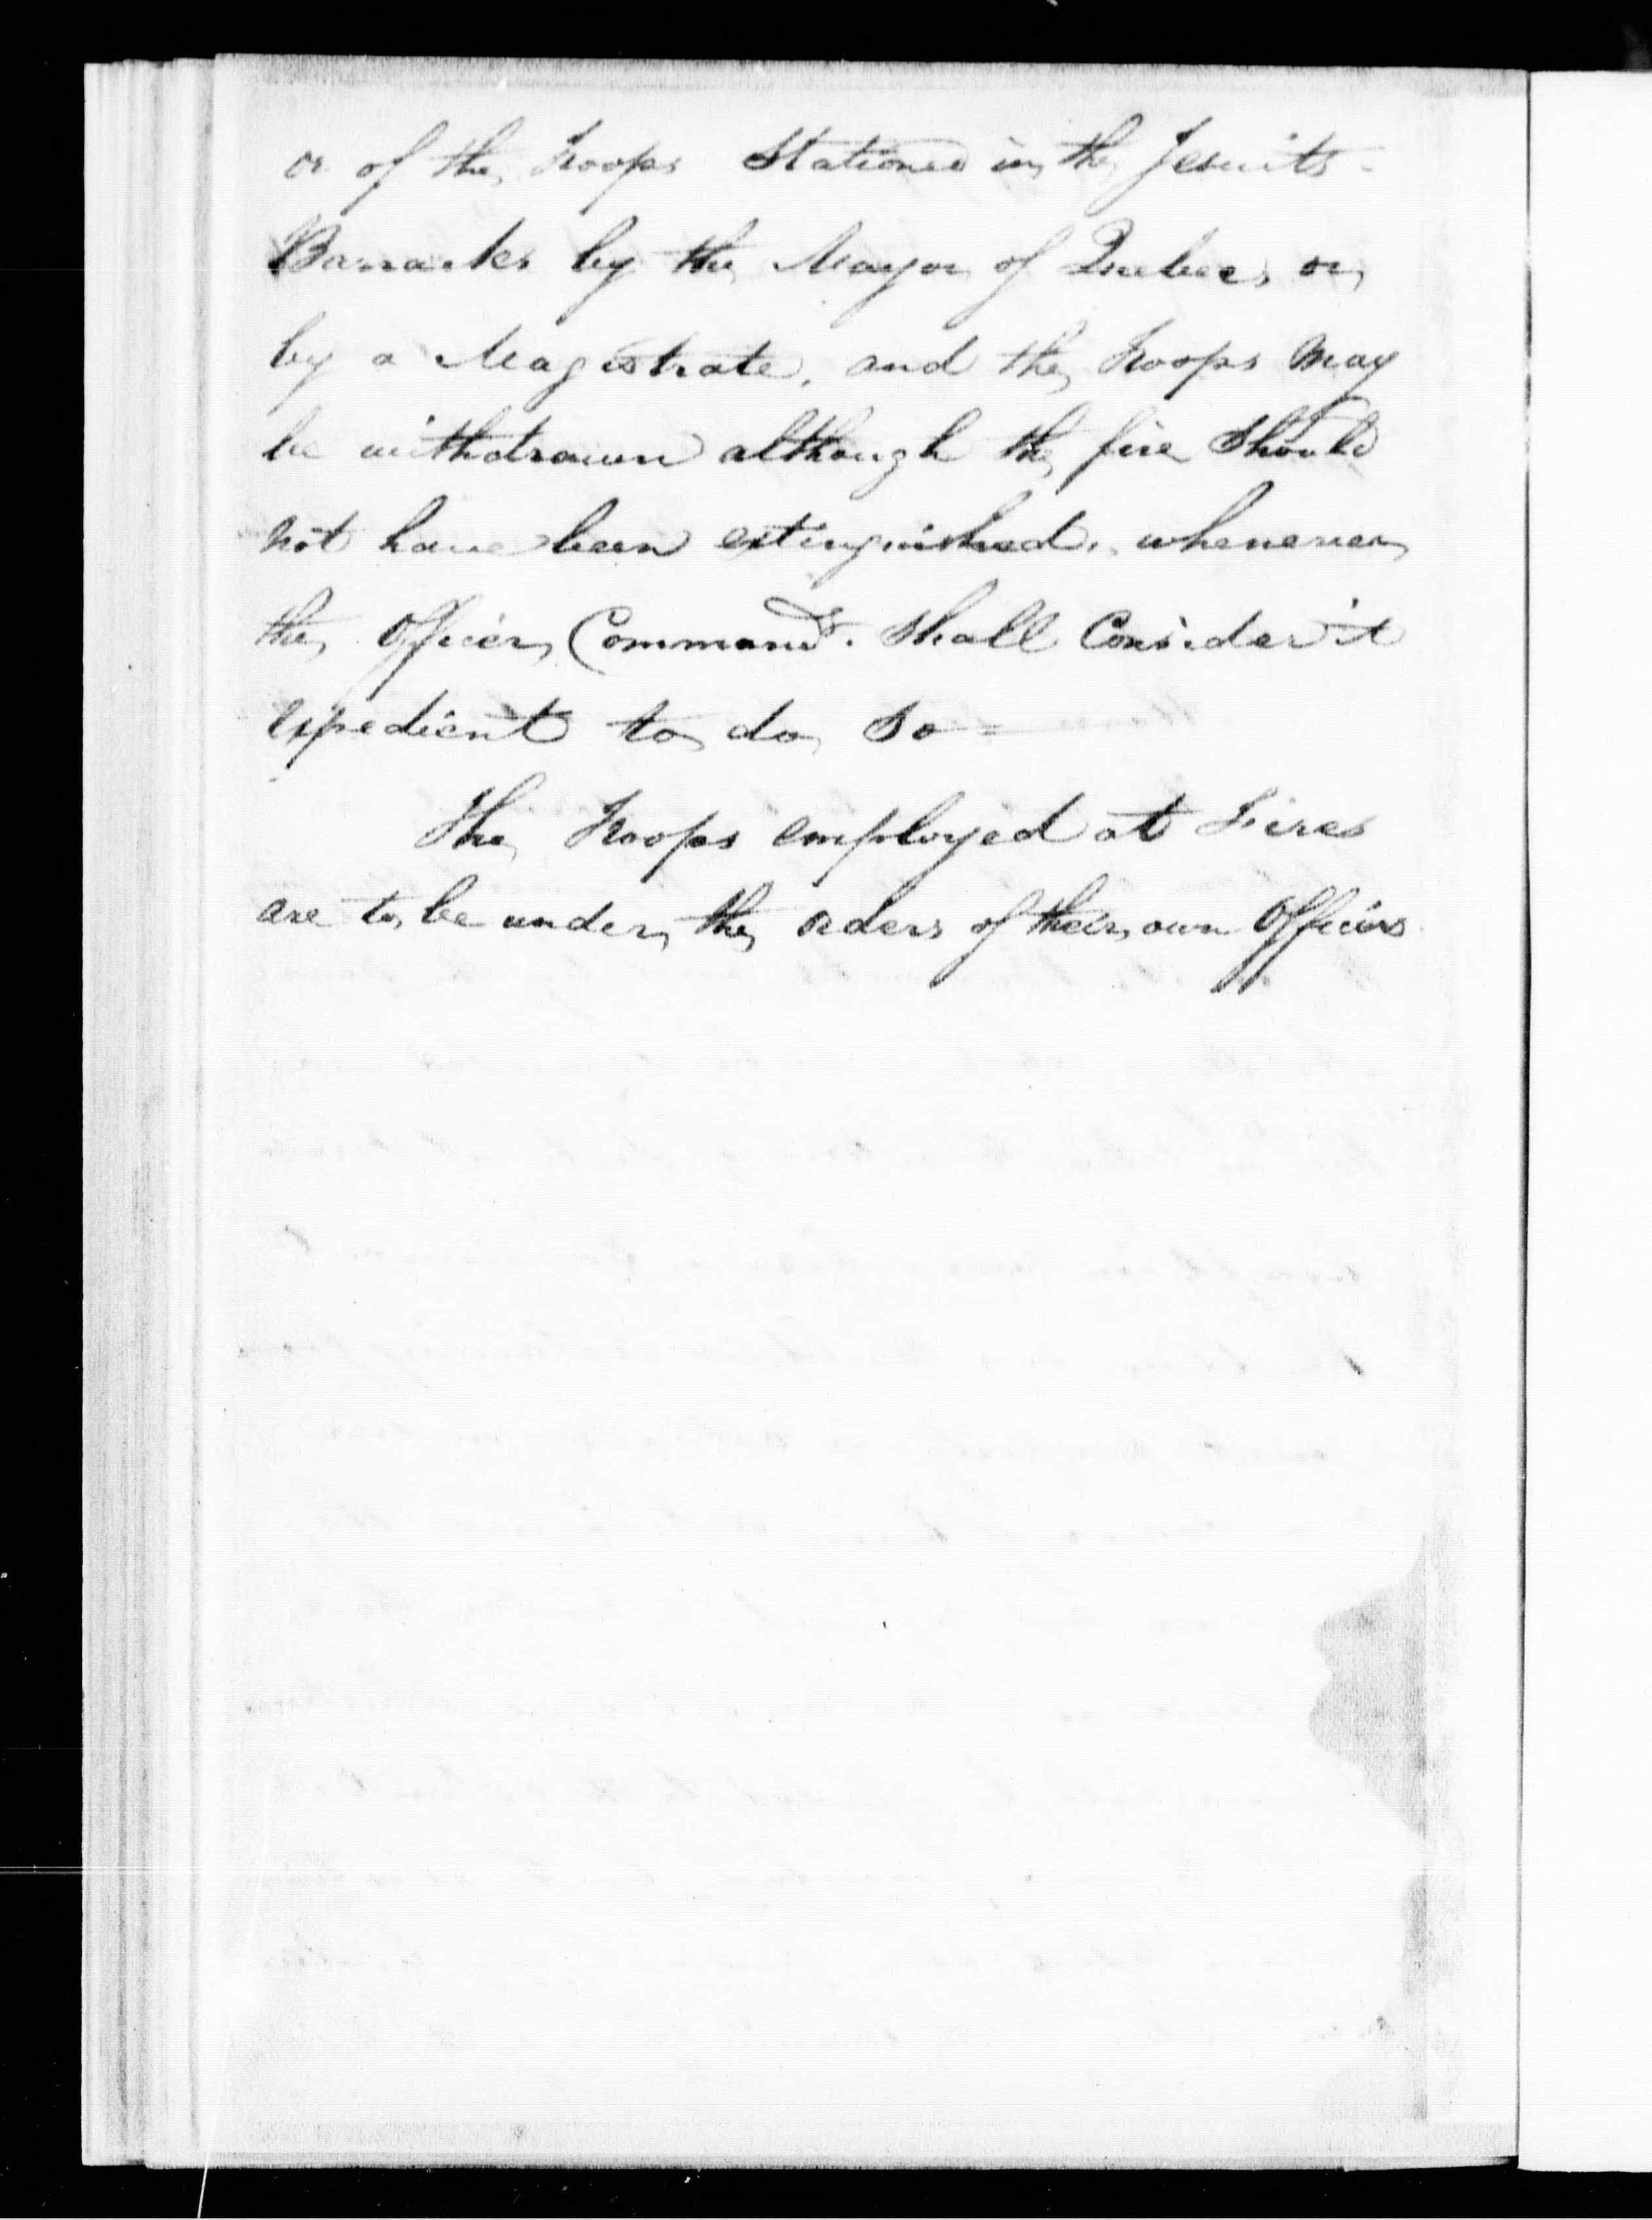 or of the Troops Stationed in the Jesuits
Barracks by the Mayor of Quebec, or
by a Magistrate, and the Troops may
be withdrawn although the fire should
not have been extinguished, whenever
the Officer Command.g shall Consider it
expedient to do so =
The Troops employed at Fires
are to be under the orders of their own Officers